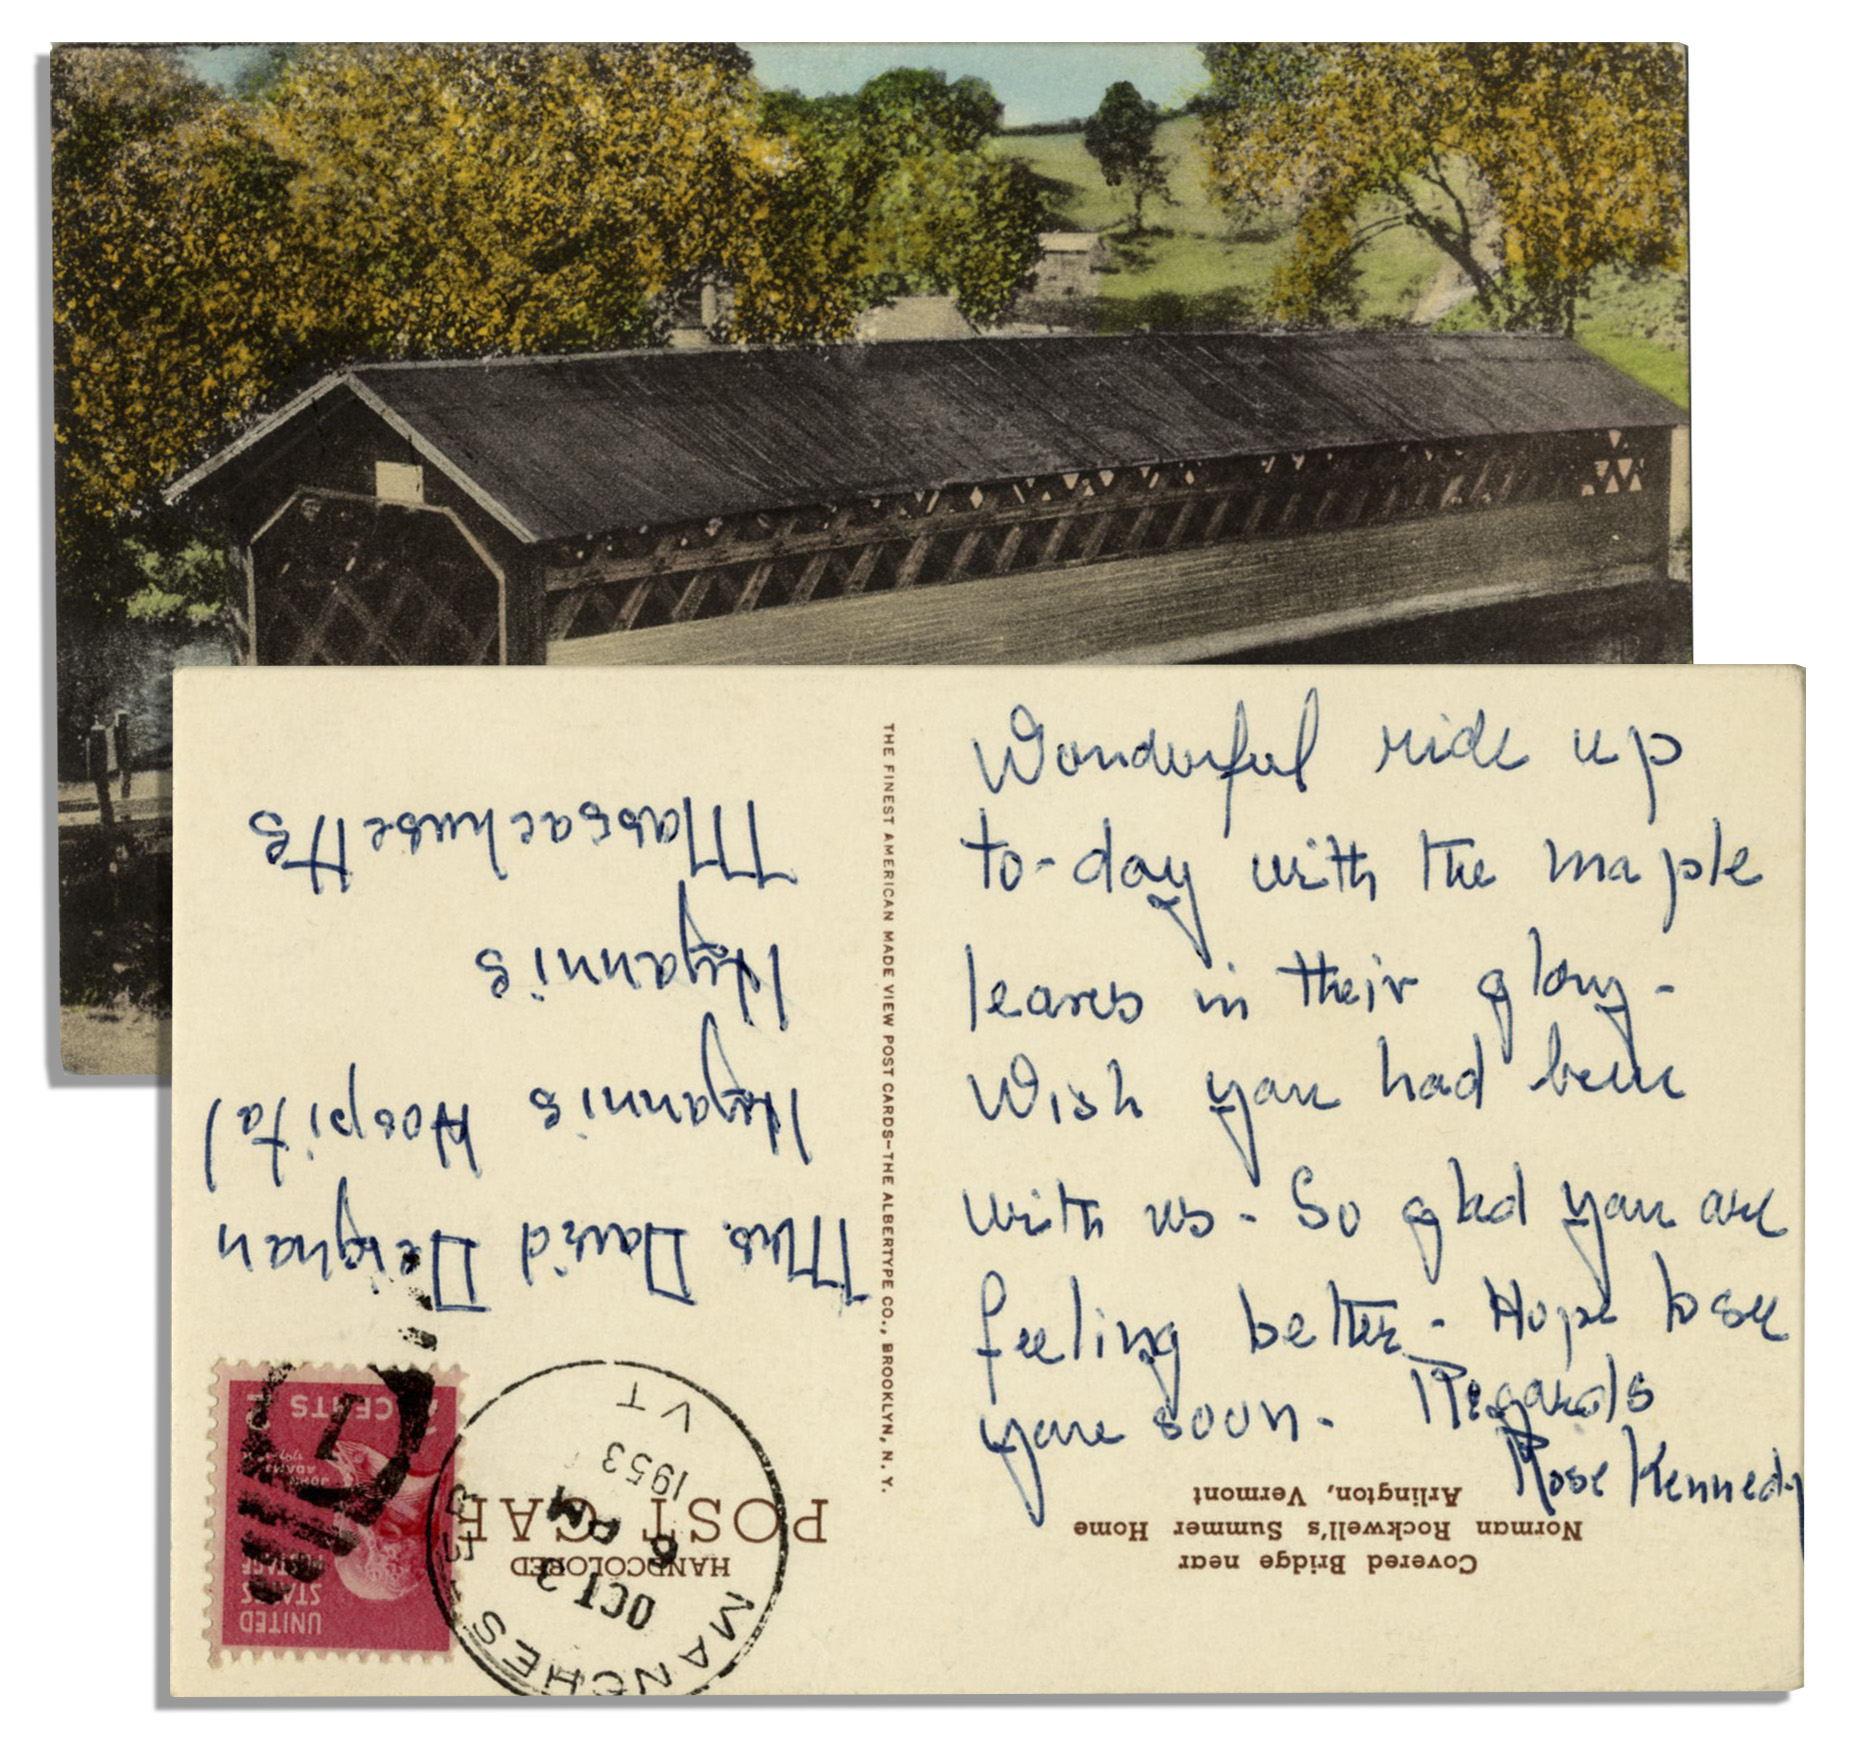 Wonderful ride up
to-day with the maple
leaves in their glory -
Wish you had been
with us - So glad you are
feeling better - Hope to see
you soon - Regards
Rose Kennedy
THE FINEST AMERICAN MADE VIEW POST CARDS—THE ALBERTYPE CO., BROOKLYN, N.Y.
Covered Bridge near
Norman Rockwell's Summer Home
Arlington, Vermont
HANDCOLORED
POST CAR
MANCHES
OCT 3
6 PM
1953
VT
UNITED
STATES
POSTAGE
JOHN
ADAMS
2 CENTS 2
Mrs. David Deignan
Hyannis Hospital
Hyannis
Massachusetts